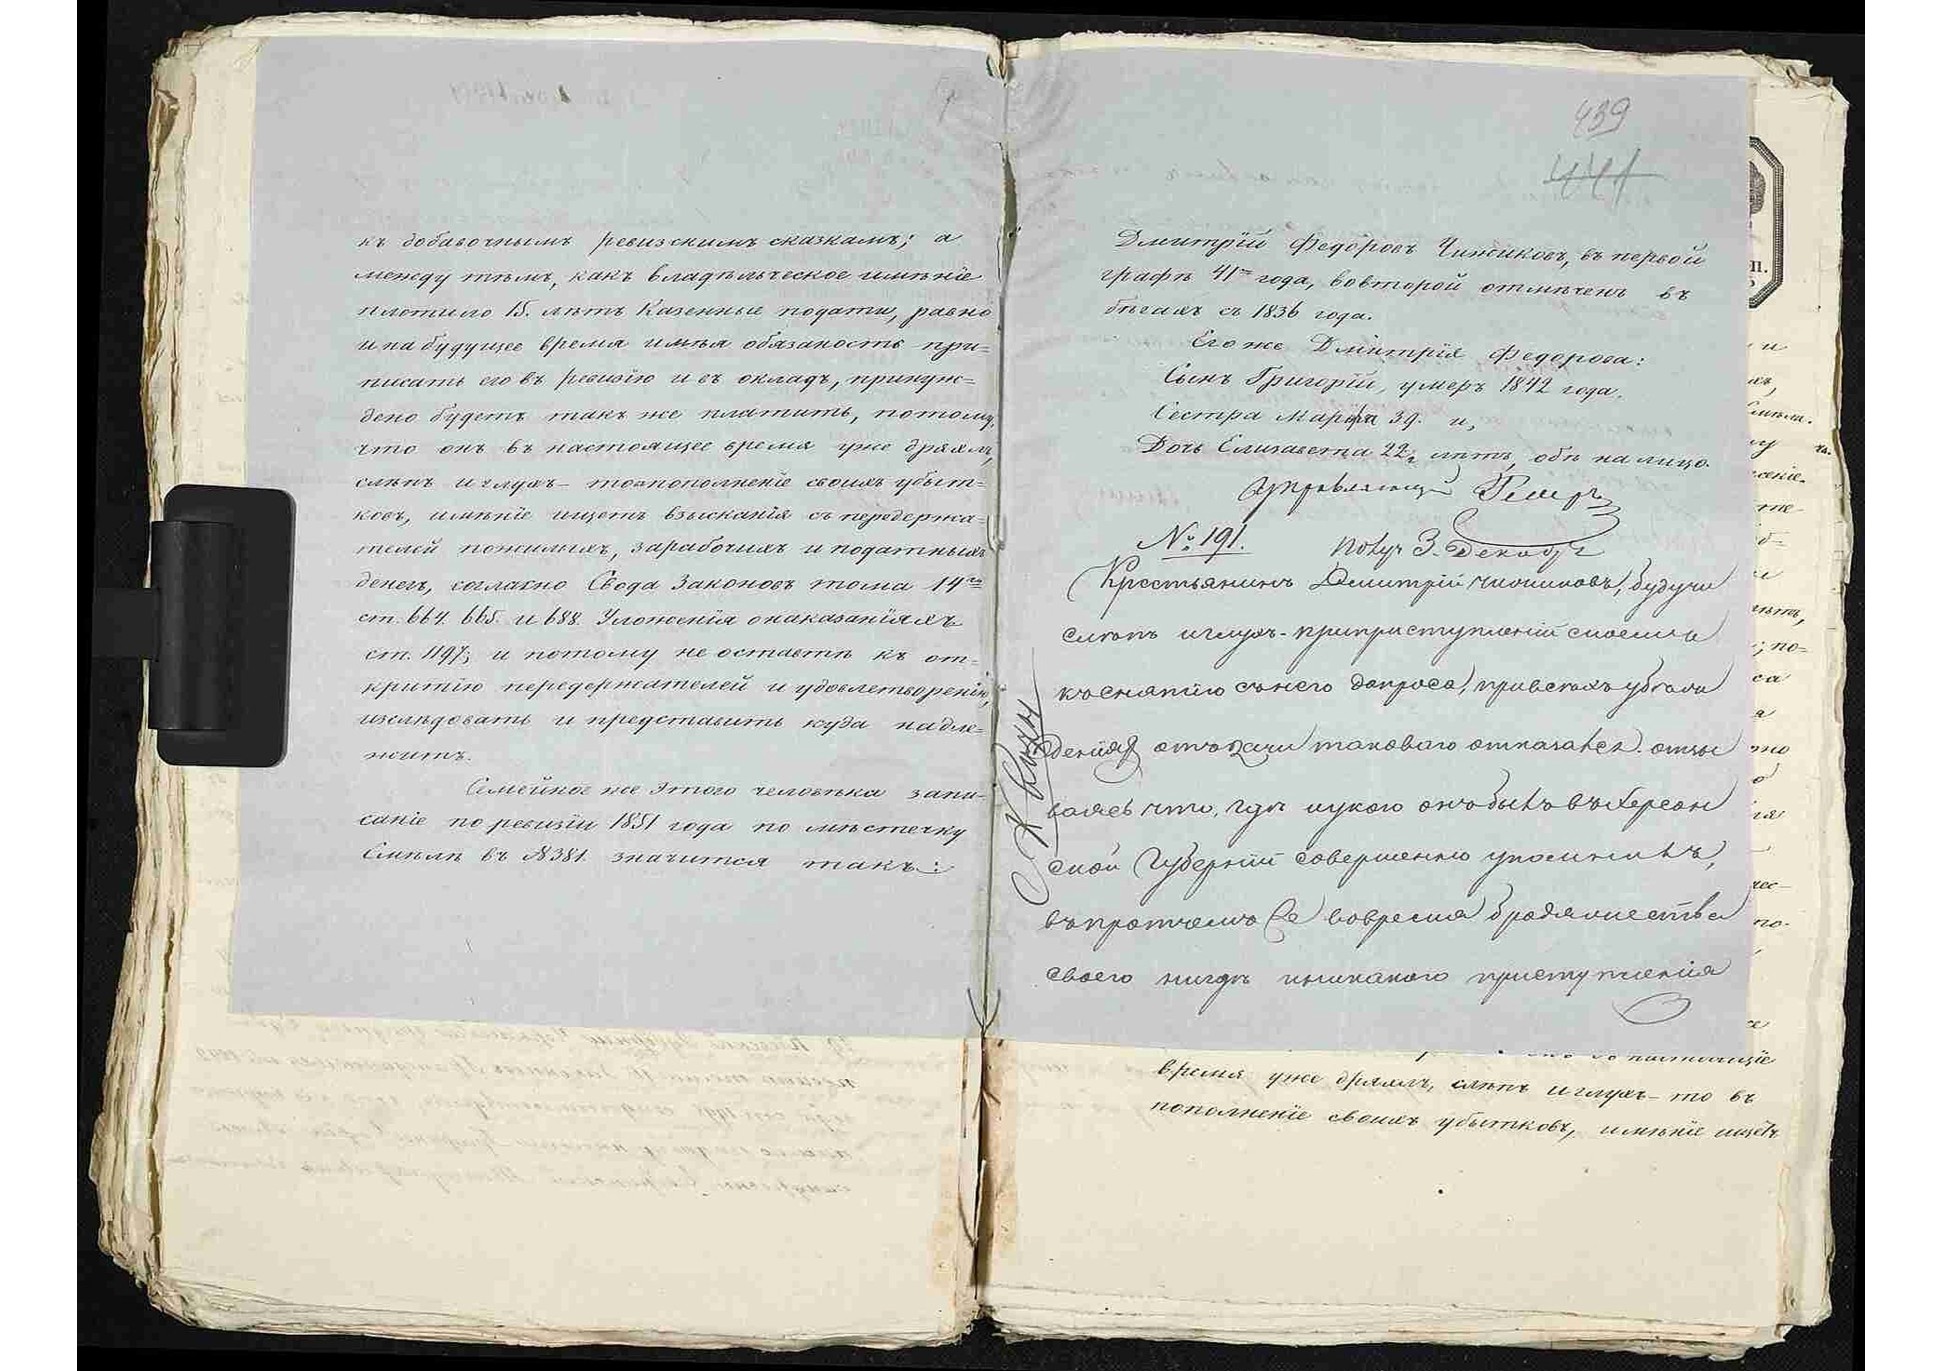 къ добавочнымъ ревизскимъ сказкамъ; а
между тѣмъ, какъ владѣльческое имѣніе
платило 15. лѣтъ казенные подати, равно
и на будущее время имѣя обязаность при=
писать его въ ревизію и въ окладъ, принуж=
дено будетъ такъ же платить, потому,
что онъ въ настоящее время уже дряхлъ,
слѣпъ и глухъ – то въ пополненіе своихъ убыт=
ковъ, имѣніе ищетъ взысканія съ передержа=
телей пожилыхъ, заработихъ и податныхъ
денегъ, согласно Свода Законовъ тома 14го
ст. 664. 665. и 688. Уложенія о наказаніяхъ
ст. 1197; и потому не оставтѣ къ от=
крытію передержателей и удовлетворенію,
изслѣдовать и представить куда надле=
житъ.
Семейное же этого человѣка запи=
саніе по ревизіи 1851 года по мѣстечку
Смѣлѣ въ №381. значится такъ:
439
441
Дмитрій Федоровъ Чижиковъ, въ первой
графѣ 41го года, во второй отмѣченъ въ
бѣгахъ съ 1836 года.
Его же Дмитрія Федорова:
Сынъ Григорій, умеръ 1842 года.
Сестра Марфа 39. и,
Дочь Елизавета 22, лѣтъ, обѣ на лицо.
Управляющій
№ 191. Получ 3. Декабр
Крестьянинъ Дмитрій Чижиковъ, будучи
слѣпъ и глухъ - при приступленіи моемъ
къ снятію съ него допроса, при всѣхъ убѣж
деніяхъ отъ дачи таковаго отказался. отзы
ваясь что, гдѣ и у кого онъ былъ въ Херсон
ской Губерніи совершенно упомнилъ,
въ протчемъ во время бродяжества
своего нигдѣ и никакого приступленія
время уже дряхлъ, слѣпъ и глухъ – то въ
пополненіе своихъ убытковъ, имѣніе ищетъ